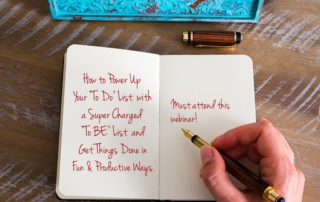 How to Power Up
Your "To Do" List with
a Super Charged
"To BE" List and
Get Things Done in
Fun & Productive Ways.
Must attend this
webinar!